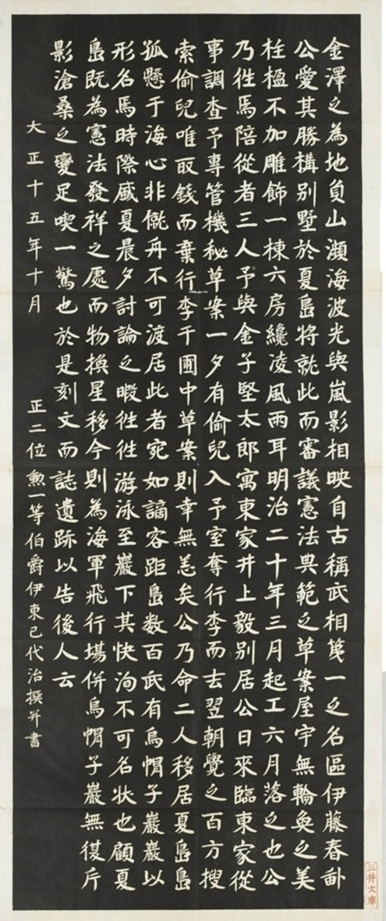 金澤之為地負山瀕海波光與嵐影相映自古稱武相第一之名區伊藤春畝
公愛其勝構別墅於夏島將就此而審議憲法典範之草案屋宇無輪奐之美
柱楹不加雕飾一棟六房纔凌風雨耳明治二十年三月起工六月落之也公
乃往焉陪從者三人予與金子堅太郎寓東家井上毅別居公日來臨東家從
事調查予專管機秘草案一夕有偷兒入予室奪行李而去翌朝覺之百方搜
索偷兒唯取錢而棄行李于圃中草案則幸無恙矣公乃命二人移居夏島島
孤懸于海心非僦舟不可渡居此者宛如謫客距島數百武有烏帽子巖巖以
形名焉時際盛夏晨夕討論之暇徃徃游泳至巖下其快洵不可名状也顧夏
島既為憲法發祥之處而物換星移今則為海軍飛行場併烏帽子巖無復片
影滄桑之變足喫一驚也於是刻文而誌遺跡以告後人云
大正十五年十月 正二位勲一等伯爵伊東巳代治撰并書
三井文庫